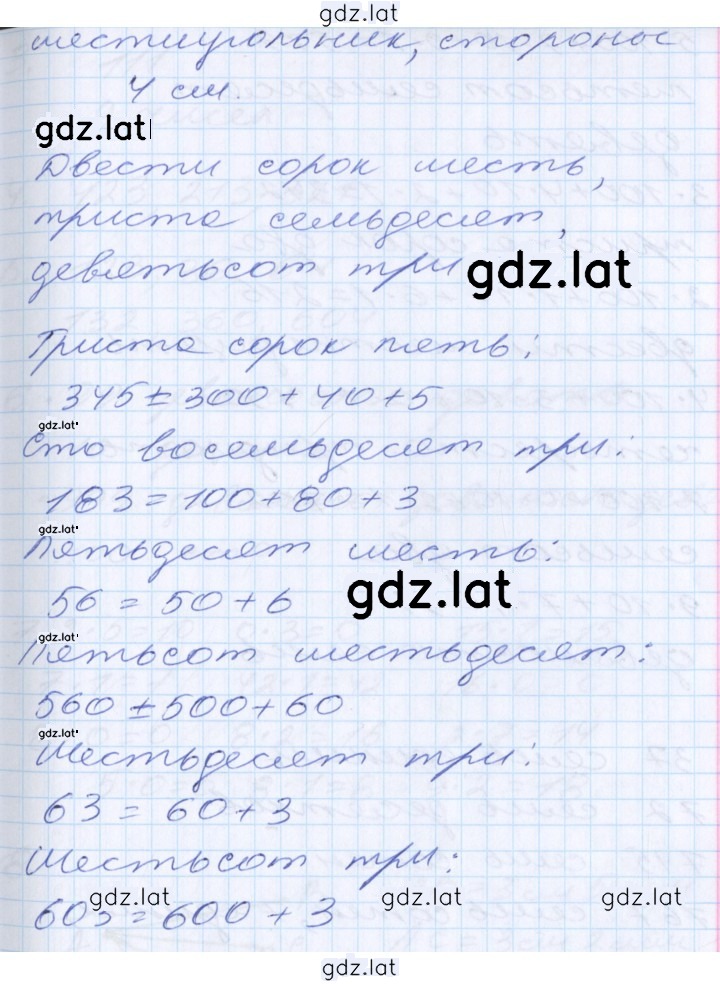 gdz.lat
шестиугольник, стороны
4 см.
gdz.lat
Двести сорок шесть,
триста семьдесят,
девятьсот три
gdz.lat
Триста сорок пять:
345 = 300 + 40 + 5
gdz.lat
Сто восемьдесят три:
183 = 100 + 80 + 3
gdz.lat
Пятьдесят шесть:
56 = 50 + 6
gdz.lat
gdz.lat
Пятьсот шестьдесят:
560 = 500 + 60
gdz.lat
Шестьдесят три:
63 = 60 + 3
Шестьсот три:
gdz.lat gdz.lat gdz.lat
603 = 600 + 3
gdz.lat